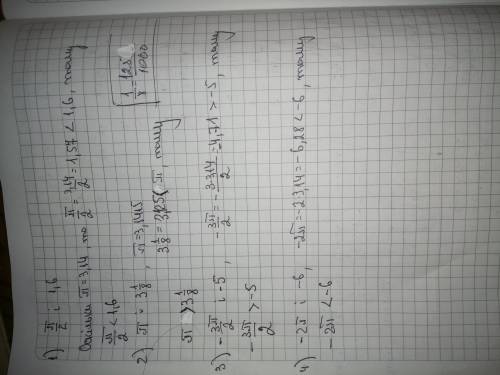 1) π/2 і 1,6
Оскільки π = 3,14, то π/2 = 3,14/2 = 1,57 < 1,6, тому
π/2 < 1,6
2) π і 3 1/8, π = 3,1415
3 1/8 = 3,125 < π, тому
1/8 = 125/1000
π > 3 1/8
3) -3π/2 і -5, -3π/2 = -3·3,14/2 = -4,71 > -5, тому
-3π/2 > -5
4) -2π і -6, -2π = -2·3,14 = -6,28 < -6, тому
-2π < -6